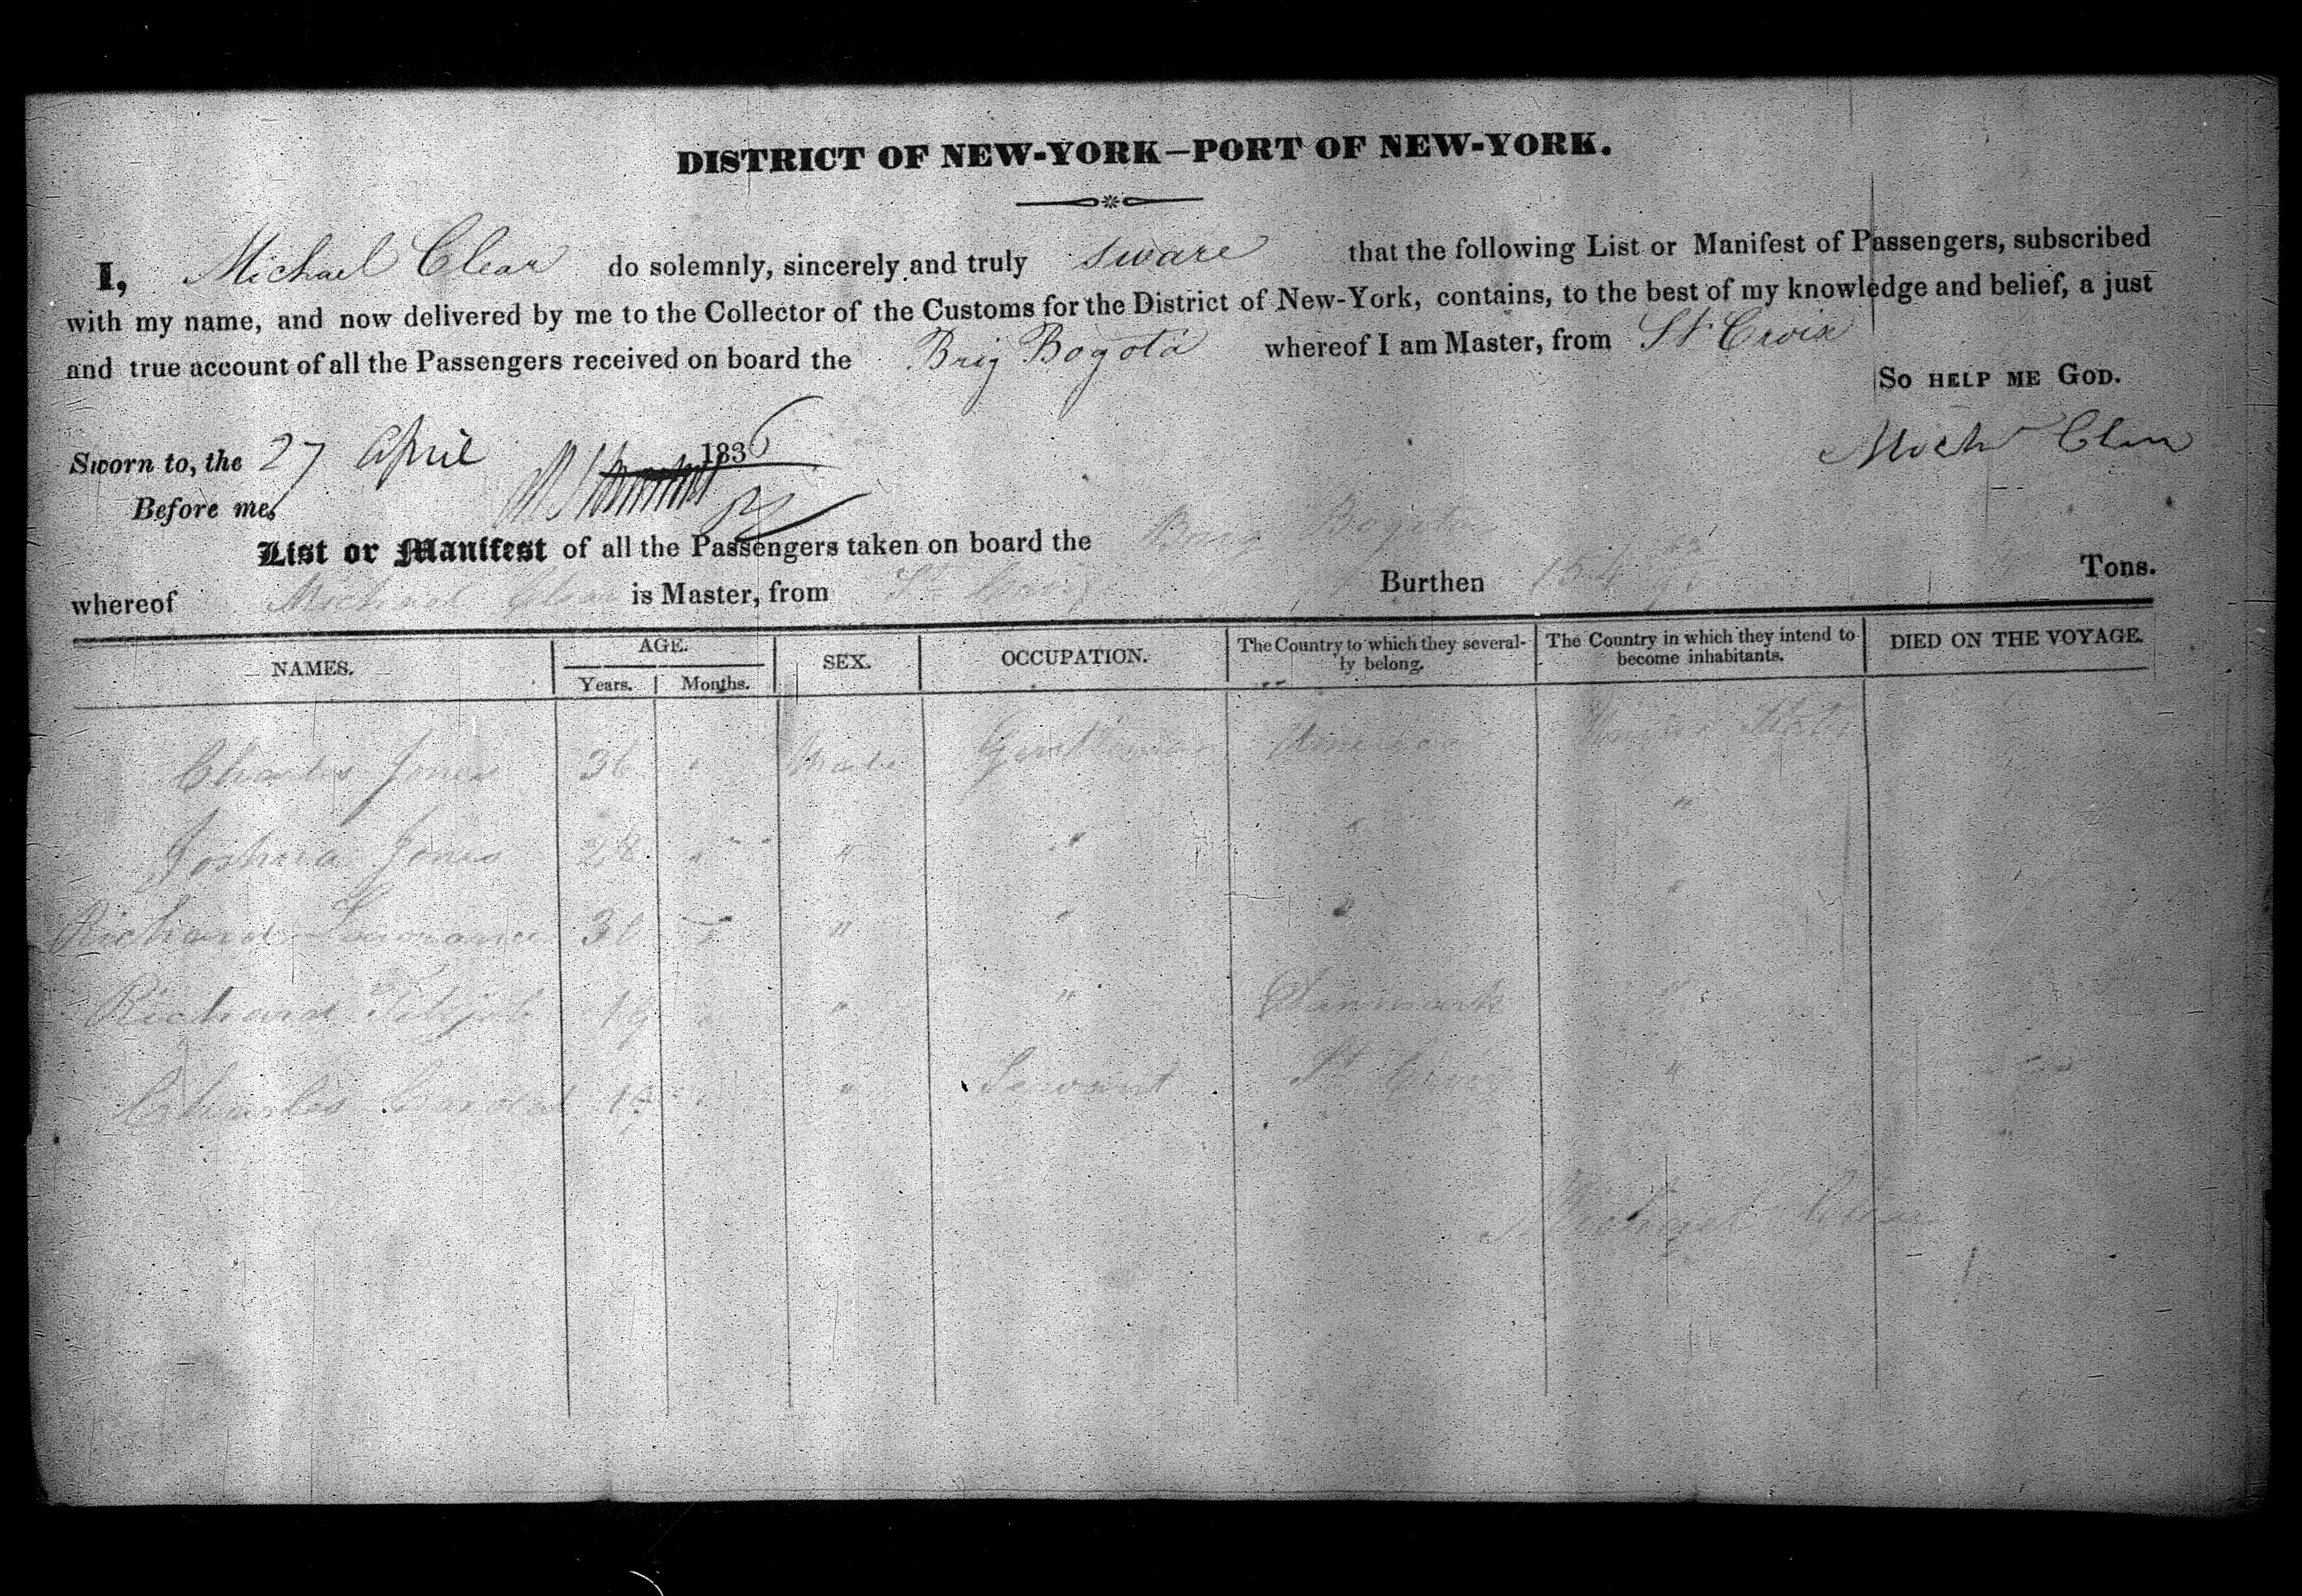 DISTRICT OF NEW-YORK—PORT OF NEW-YORK.
I, Michael Clear do solemnly, sincerely and truly sware that the following List or Manifest of Passengers, subscribed
with my name, and now delivered by me to the Collector of the Customs for the District of New-York, contains, to the best of my knowledge and belief, a just
and true account of all the Passengers received on board the Brig Bogota whereof I am Master, from St Croix
So HELP ME GOD.
Sworn to, the 27 April 1836
Michl Clear
Before me,
List or Manifest of all the Passengers taken on board the Brig Bogota
whereof Michael Clear is Master, from St Croix Burthen Tons.
NAMES. AGE. Years. Months. SEX. OCCUPATION. The Country to which they severally belong. The Country in which they intend to become inhabitants. DIED ON THE VOYAGE.
Charles Jones 36 " Male Gentleman America United States
Joshua Jones 28 " " " " "
Richard 36 " " " " "
Richard 19 " " " Danmark "
Charles 19 " " Servant St Croix "
Michael Clear